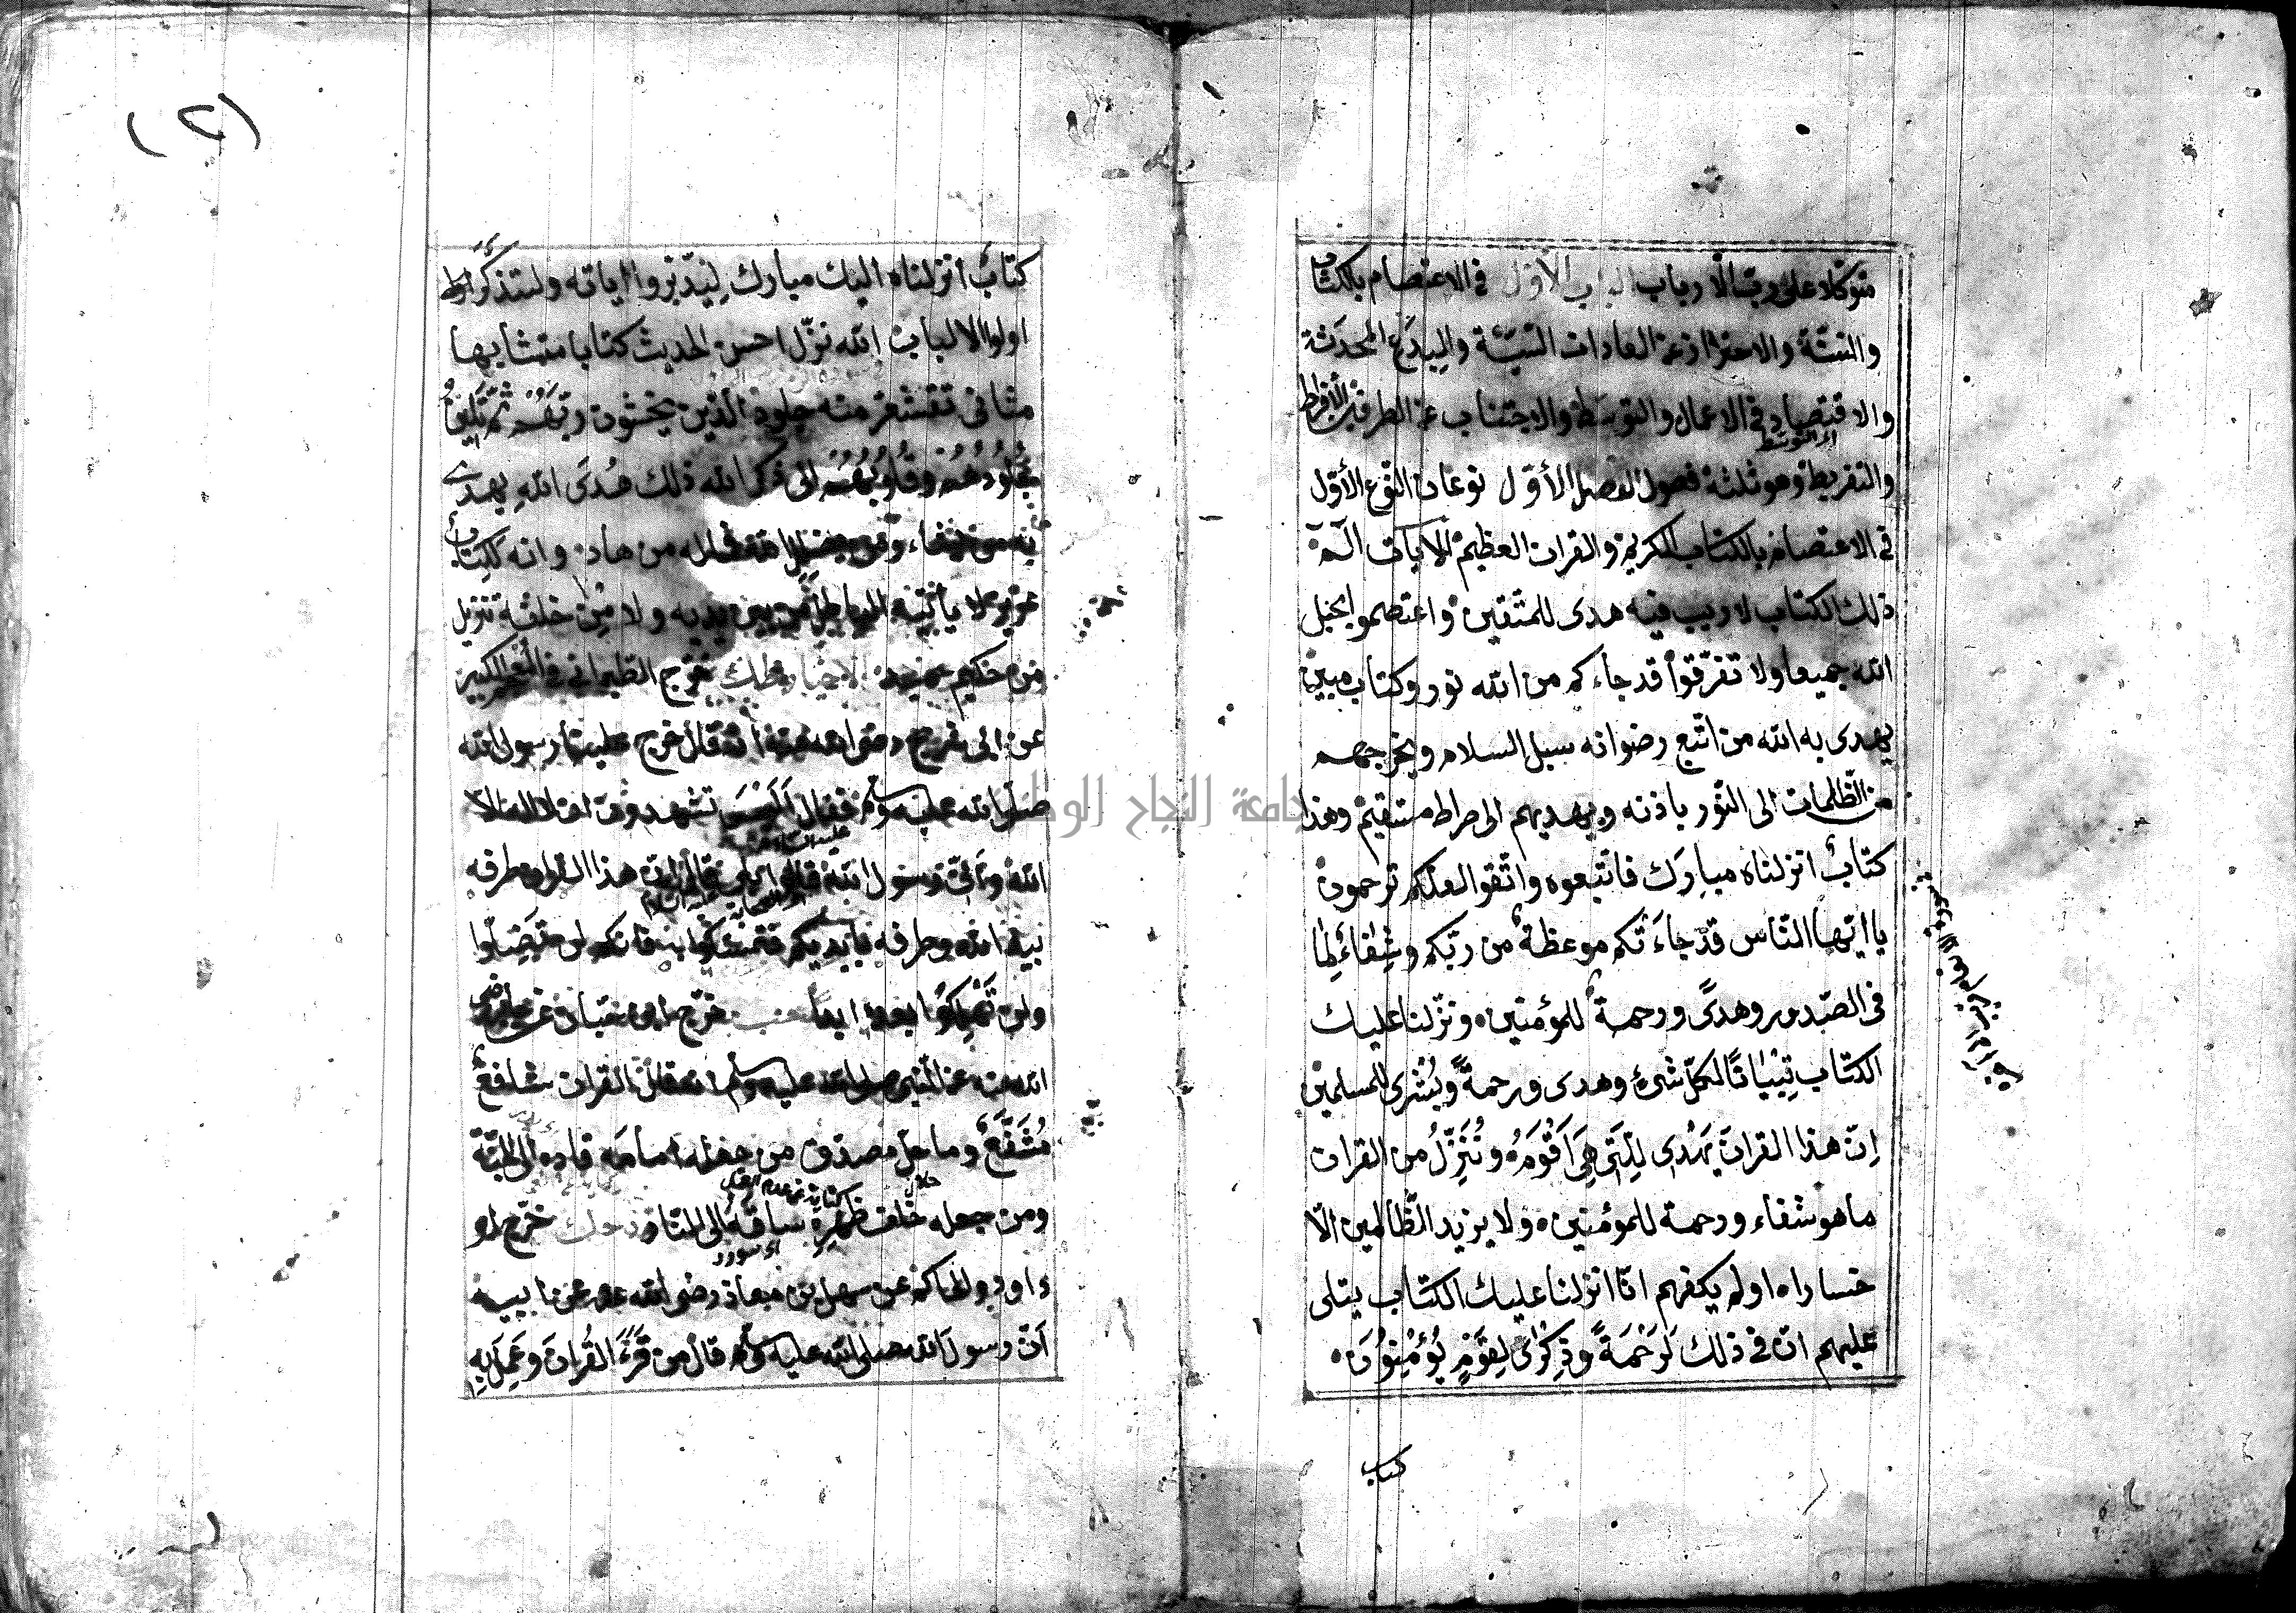 متوكلا على رب الأرباب الباب الأول في الاعتصام بالكتاب
والسنّة والاحتراز عن العادات السيّئة والبِدَع المحدَثة
والاقتصاد في الاعمال والتوسّط والاجتناب عن الطرفين الأفراط
اى التوسّط
والتفريط وهو ثلثة فصول الفصل الأوّل نوعان النوع الأوّل
في الاعتصام بالكتاب الكريم والقران العظيم الايات الٓمٓ
ذلك الكتاب لا ريب فيه هدى للمتّقين واعتصموا بحبل
الله جميعا ولا تفرّقوا قد جاءكم من الله نور وكتاب مبين
يهدى به الله من اتّبع رضوانه سبل السلام ويخرجهم
من الظّلمات الى النّور باذنه ويهديهم الى صراط مستقيم وهذا
كتابٌ انزلناه مبارك فاتّبعوه واتّقوا لعلكم ترحمون
يا ايّها النّاس قد جاءَتكم موعظةٌ من ربّكم وشِفاءٌ لِما
في الصّدور وهدىً ورحمةٌ للمؤمنين ونزّلنا عليك
الكتاب تِبْيانًا لكلّ شىءٍ وهدى ورحمةً وبُشرى للمسلمين
إنّ هذا القرانَ يَهْدى لِلّتى هِىَ اَقْوَمُ ونُنَزِّلُ من القران
ما هو شفاء ورحمة للمؤمنين ولا يزيد الظّالمين الّا
خسارا اولم يكفهم انّا انزلنا عليك الكتاب يتلى
عليهم انّ في ذلك لَرَحْمَةً وذِكْرٰى لِقَوْمٍ يُؤْمِنُونَ
كتاب
(٢)
كتابٌ انزلناه اليك مبارك لِيَدّبّروا اياته وليتذكّر
اولوا الالباب الله نزّل احسن الحديث كتابا متشابها
مثانى تقشعرّ منه جلود الّذين يخشون ربّهم ثمّ تَلينُ
جُلُودُهُمْ وقُلُوبُهُمْ الى ذكر الله ذلك هُدَى الله يهدى
به من يشاء ومن يضلل الله فما له من هاد وانه لكتابٌ
عزيز لا يأتيه الباطل من بين يديه ولا مِنْ خلفه تنزيل
من حكيم حميد الاخبار طك خرّج الطبرانى في المعجم الكبير
عن ابى شريح رضى الله عنه انه قال خرج علينا رسول الله
صلّى الله عليه وسلم فقال اَلَيْسَ تشهدون ان لا اله الا
الله وانّى رسول الله قالوا بلى قال انّ هذا القران طرفه
بيد الله وطرفه بايديكم فتمسّكوا به فانكم لن تضلّوا
ولن تهلكوا بعده ابدا حب خرّج ابن حبّان عن جابر رضى
الله عنه عن النّبى صلى الله عليه وسلم انه قال القران شافعٌ
مُشَفَّعٌ وماحل مصدّق من جعله امامه قاده الى الجنّة
ومن جعله خلف ظهرِهِ ساقَهُ الى النّار دحك خرّج ابو
داود والحاكم عن سهل بن معاذ رضى الله عنه عن ابيه
اَنّ رسول الله صلى الله عليه وسلم قال من قَرَءَ القُرانَ وعَمِلَ بِهِ
جامعة النجاح الوطنية